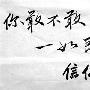 你敢不敢
一如
信仰